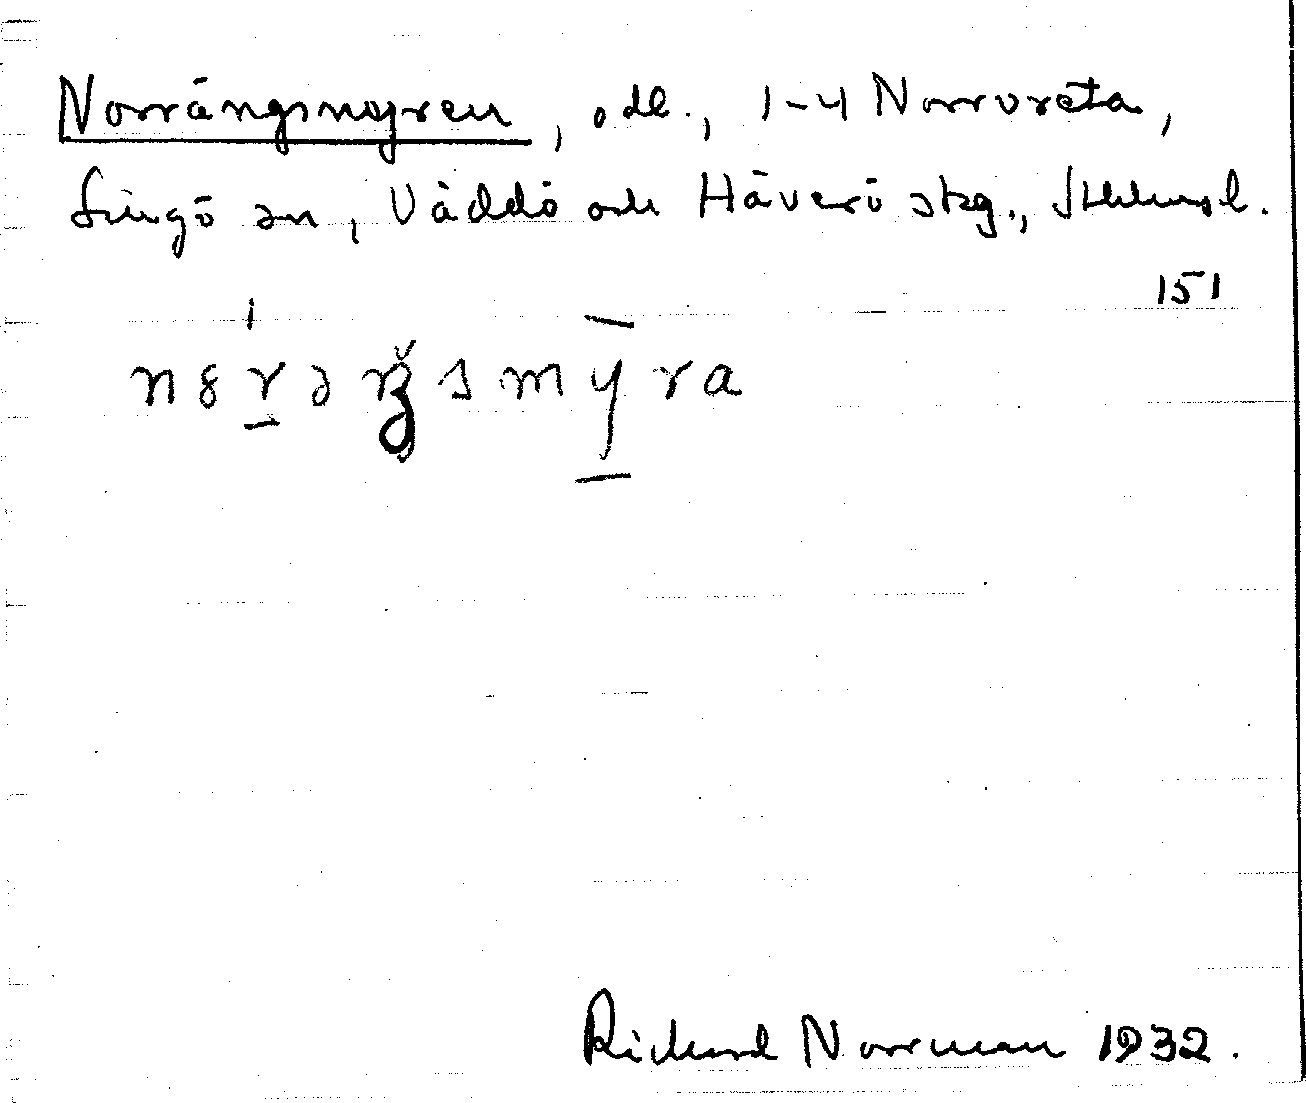 Norrängsmyren, odl., 1-4 Norrvreta,
Singö sn, Väddö och Häverö skg., Sthlmsl.
151
Richard Norrman 1932.